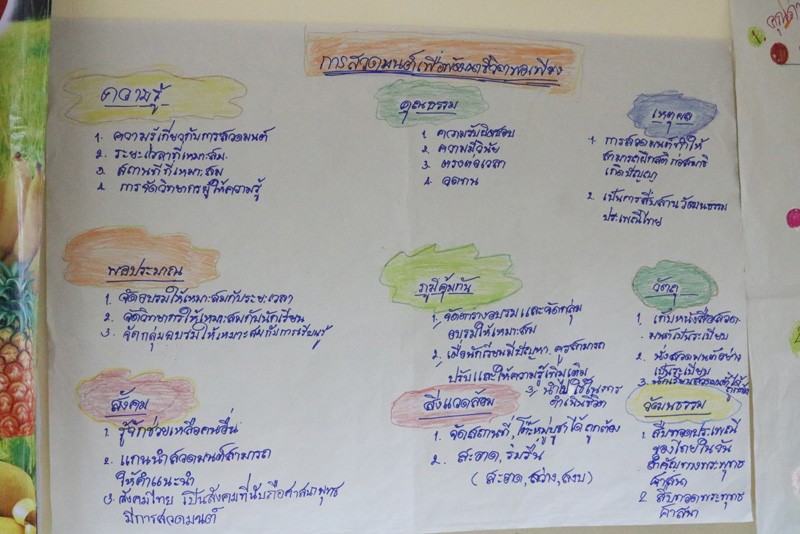 การสวดมนต์เพื่อพัฒนาชีวิตพอเพียง
ความรู้
1. ความรู้เกี่ยวกับการสวดมนต์
2. ระยะเวลาที่เหมาะสม
3. สถานที่ที่เหมาะสม
4. การจัดวิทยากรผู้ให้ความรู้
คุณธรรม
1. ความรับผิดชอบ
2. ความมีวินัย
3. ตรงต่อเวลา
4. อดทน
เหตุผล
1. การสวดมนต์ทำให้
สามารถฝึกสติ ก่อสมาธิ
เกิดปัญญา
2. เป็นการสืบสานวัฒนธรรม
ประเพณีไทย
พอประมาณ
1. จัดอบรมให้เหมาะสมกับระยะเวลา
2. จัดวิทยากรให้เหมาะสมกับนักเรียน
3. จัดกลุ่มอบรมให้เหมาะสมกับการเรียนรู้
ภูมิคุ้มกัน
1. จัดตารางอบรมและจัดกลุ่ม
อบรมให้เหมาะสม
2. เมื่อนักเรียนมีปัญหา ครูสามารถ
ปรับและให้ความรู้เพิ่มเติม
3. นำไปใช้ในการ
ดำเนินชีวิต
วัตถุ
1. เก็บหนังสือสวด
มนต์เป็นระเบียบ
2. นั่งสวดมนต์อย่าง
เป็นระเบียบ
3. นักเรียนสวดมนต์ได้
ถูกต้อง
สังคม
1. รู้จักช่วยเหลือคนอื่น
2. แกนนำสวดมนต์สามารถ
ให้คำแนะนำ
3. สังคมไทย เป็นสังคมที่นับถือศาสนาพุทธ
มีการสวดมนต์
สิ่งแวดล้อม
1. จัดสถานที่, โต๊ะหมู่บูชาได้ถูกต้อง
2. สะอาด, ร่มรื่น
(สะอาด, สว่าง, สงบ)
วัฒนธรรม
1. สืบทอดประเพณี
ของไทยในวัน
สำคัญทางพระพุทธ
ศาสนา
2. สืบทอดพระพุทธ
ศาสนา